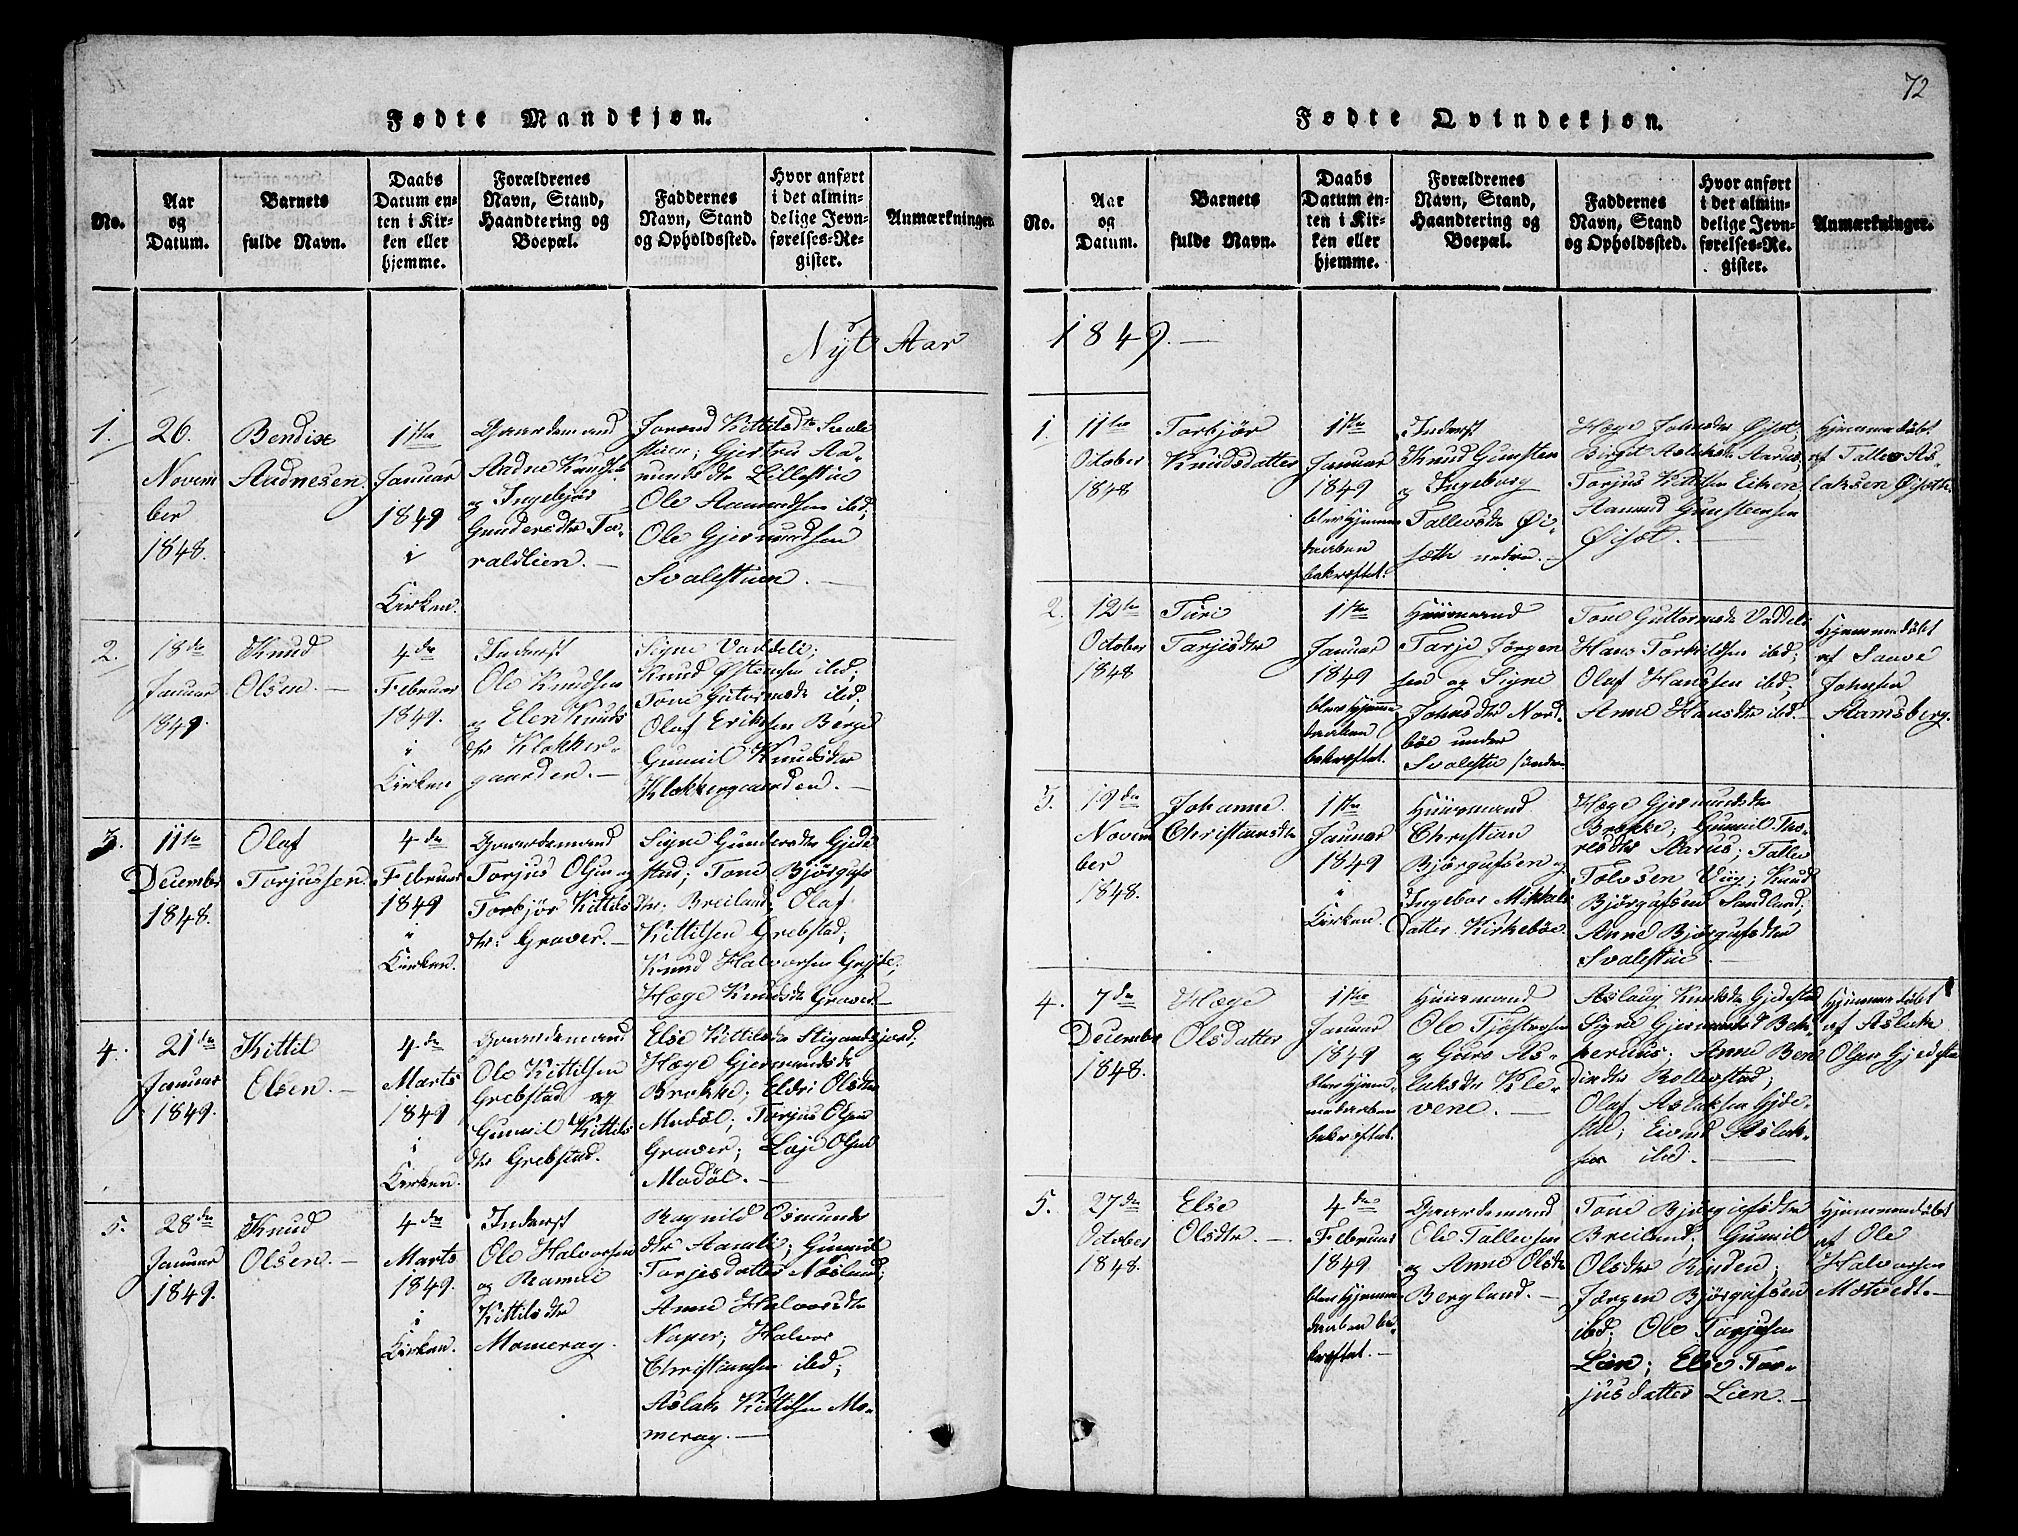 72
Fødte Mandkjøn.
No.
Aar
og
Datum.
Barnets
fulde Navn.
Daabs
Datum en-
ten i Kir-
ken eller
hjemme.
Forældrenes
Navn, Stand,
Haandtering og
Boepæl.
Faddernes
Navn, Stand
og Opholdssted.
Hvor anført
i det almin-
delige Jevn-
førelses-Re-
gister.
Anmærkninger
Nyt Aar
1.
26.
Novem
ber
1848.
Bendix
Audnesen
1ste
Januar
1849
i
Kirken.
Gaardemand
Audne Knuds.
og Ingebjør
Gundersdtr Ta-
raldlien. —
Jorand Kittilsdtr Svale
stuen; Gjertru Aa-
mundsdtr Lillestue
Ole Aamundsen ibd;
Ole Gjermundsen
Svalestuen. —
2.
18de
Januar
1849.
Knud
Olsen. —
4de
Februar
1849.
i
Kirken
Inderst
Ole Knudsen
og Elen Knuds
dtr Klokker-
gaarden. —
Signe Vaddeli;
Knud Østensen ibd;
Tone Gutormsdtr ibd;
Olaf Eriksen Berge
Gunnil Knudsdtr
Klokkergaarden. —
3.
11te
December
1848.
Olaf
Torjussen
4de
Februar
1849
i
Kirken.
Gaardemand
Torjus Olsen og
Torbjør Kittils
dtr: Graver. —
Signe Gundersdtr Gjede
stad; Tone Bjørgufs
dtr: Breiland; Olaf
Kittilsen Grebstad;
Knud Halvorsen
Hæge Knudsdtr Graver. —
4.
21de
Januar
1849.
Kittil
Olsen. —
4de
Marts
1849
i
Kirken.
Gaardemand
Ole Kittilsen
Grebstad og
Gunnil Kittils
dtr Grebstad.
Else Kittilsdtr
Hæge Gjermundsdtr
Brokke; Eldri Olsdtr
Modøl; Torjus Olsen
Graver; Olsen
Modøl. —
5.
28de
Januar
1849.
Knud
Olsen. —
4de
Marts
1849.
i
Kirken.
Inderst
Ole Halvorsen
og
Kittilsdtr
Momerag.
Ragnild Osmunds
dtr Aamli; Gunnil
Torjesdatter Næsland;
Anne Halvorsdtr
Naper; Halvor
Christiansen ibd;
Aslak Kittilsen Mo-
merag. —
Fødte Qvindekjøn.
No.
Aar
og
Datum.
Barnets
fulde Navn.
Daabs
Datum en-
ten i Kir-
ken eller
hjemme.
Forældrenes
Navn, Stand,
Haandtering og
Boepæl.
Faddernes
Navn, Stand
og Opholdssted.
Hvor anført
i det almin-
delige Jevn-
førelses-Re-
gister.
Anmærkninger.
1849. —
1.
11te
October
1848
Torbjør
Knudsdatter
1ste
Januar
1849
blev hjemme
daaben
bekræftet.
Inderst
Knud Gunsten
og Ingeborg
Tallevsdtr Øi-
sæth nedre. —
Hæge Johnsdtr Øisæt,
Birgit Aslaksdtr Aarus;
Torjus Kittilsen Eiken,
Aamund Gunstensen
Øisæt. —
Hjemmedøbt
af Tallev As-
laksen Øisæth.
2.
12te
October
1848
Turi
Tarjisdtr
1ste
Januar
1849
blev hjemme
daaben
bekræftet.
Huusmand
Tarje Jørgen
sen og Signe
Johnsdtr Nord-
bøe under
Svalestu søndre
Tone Guttormsdtr Vaddeli
Hans Torkildsen ibd;
Olaf Hanssen ibd;
Anne Hansdtr ibd. —
Hjemmedøbt
af Sauve
Johnsen
Aamsberg.
3.
19de
Novem
ber
1848.
Johanne
Christiansdtr
1ste
Januar
1849
i
Kirken.
Huusmand
Christian
Bjørgufsen og
Ingebor Mikkels
datter Kirkebøe.
Hæge Gjermundsdtr
Brokke; Gunnil Tho-
resdtr Aarus; Tallev
Tolvsen Viig; Knud
Bjørgufsen Sandland;
Anne Bjørgufsdtr
Svalestue. —
4.
7de
December
1848.
Hæge
Olsdatter
1ste
Januar
1849
blev hjem-
medaaben
bekræftet.
Huusmand
Ole Tjøstovsen
og Guro As-
laksdtr Kle-
vene. —
Aslaug Knudsdtr Gjedestad
Signe Gjermundsd Bek-
kerhuus; Anne Ben
dixdtr Rollevstad;
Olaf Aslaksen Gjede-
stad; Eivind Aslak-
sen ibd. —
Hjemmedøbt
af Aslak
Olsen Gjedesta
5.
27de
October
1848.
Else
Olsdtr. —
4de
Februar
1849
blev hjemme
daaben be-
kræftet.
Gaardemand
Ole Tallevsen
og Anne Olsdtr
Bergland. —
Tone Bjørgufsdtr
Breiland; Gunnil
Olsdtr Rinden;
Jørgen Bjørgufsen
ibd; Ole Torjusen
Lien; Else Tor-
jusdatter Lien. —
Hjemmedøbt
af Ole
Halvorsen
Motvedt. —